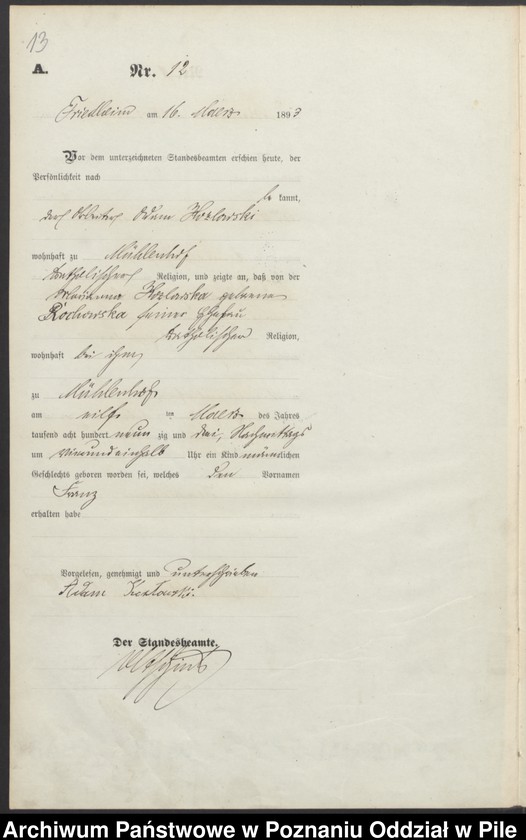 13
A. Nr. 12
Friedheim am 16. März 1893
Vor dem unterzeichneten Standesbeamten erschien heute, der
Persönlichkeit nach
be kannt,
der Arbeiter Adam Kozlowski
wohnhaft zu Mühlenhof
katholischer Religion, und zeigte an, daß von der
Marianna Kozlowska geborene
Rochowska seiner Ehefrau
katholischer Religion,
wohnhaft bei ihm,
zu Mühlenhof
am elf ten März des Jahres
tausend acht hundert neun zig und drei, Nachmittags
um Uhr ein Kind männlichen
Geschlechts geboren worden sei, welches den Vornamen
Franz
erhalten habe
Vorgelesen, genehmigt und unterschrieben
Adam Kozlowski.
Der Standesbeamte.
Archiwum Państwowe w Poznaniu Oddział w Pile